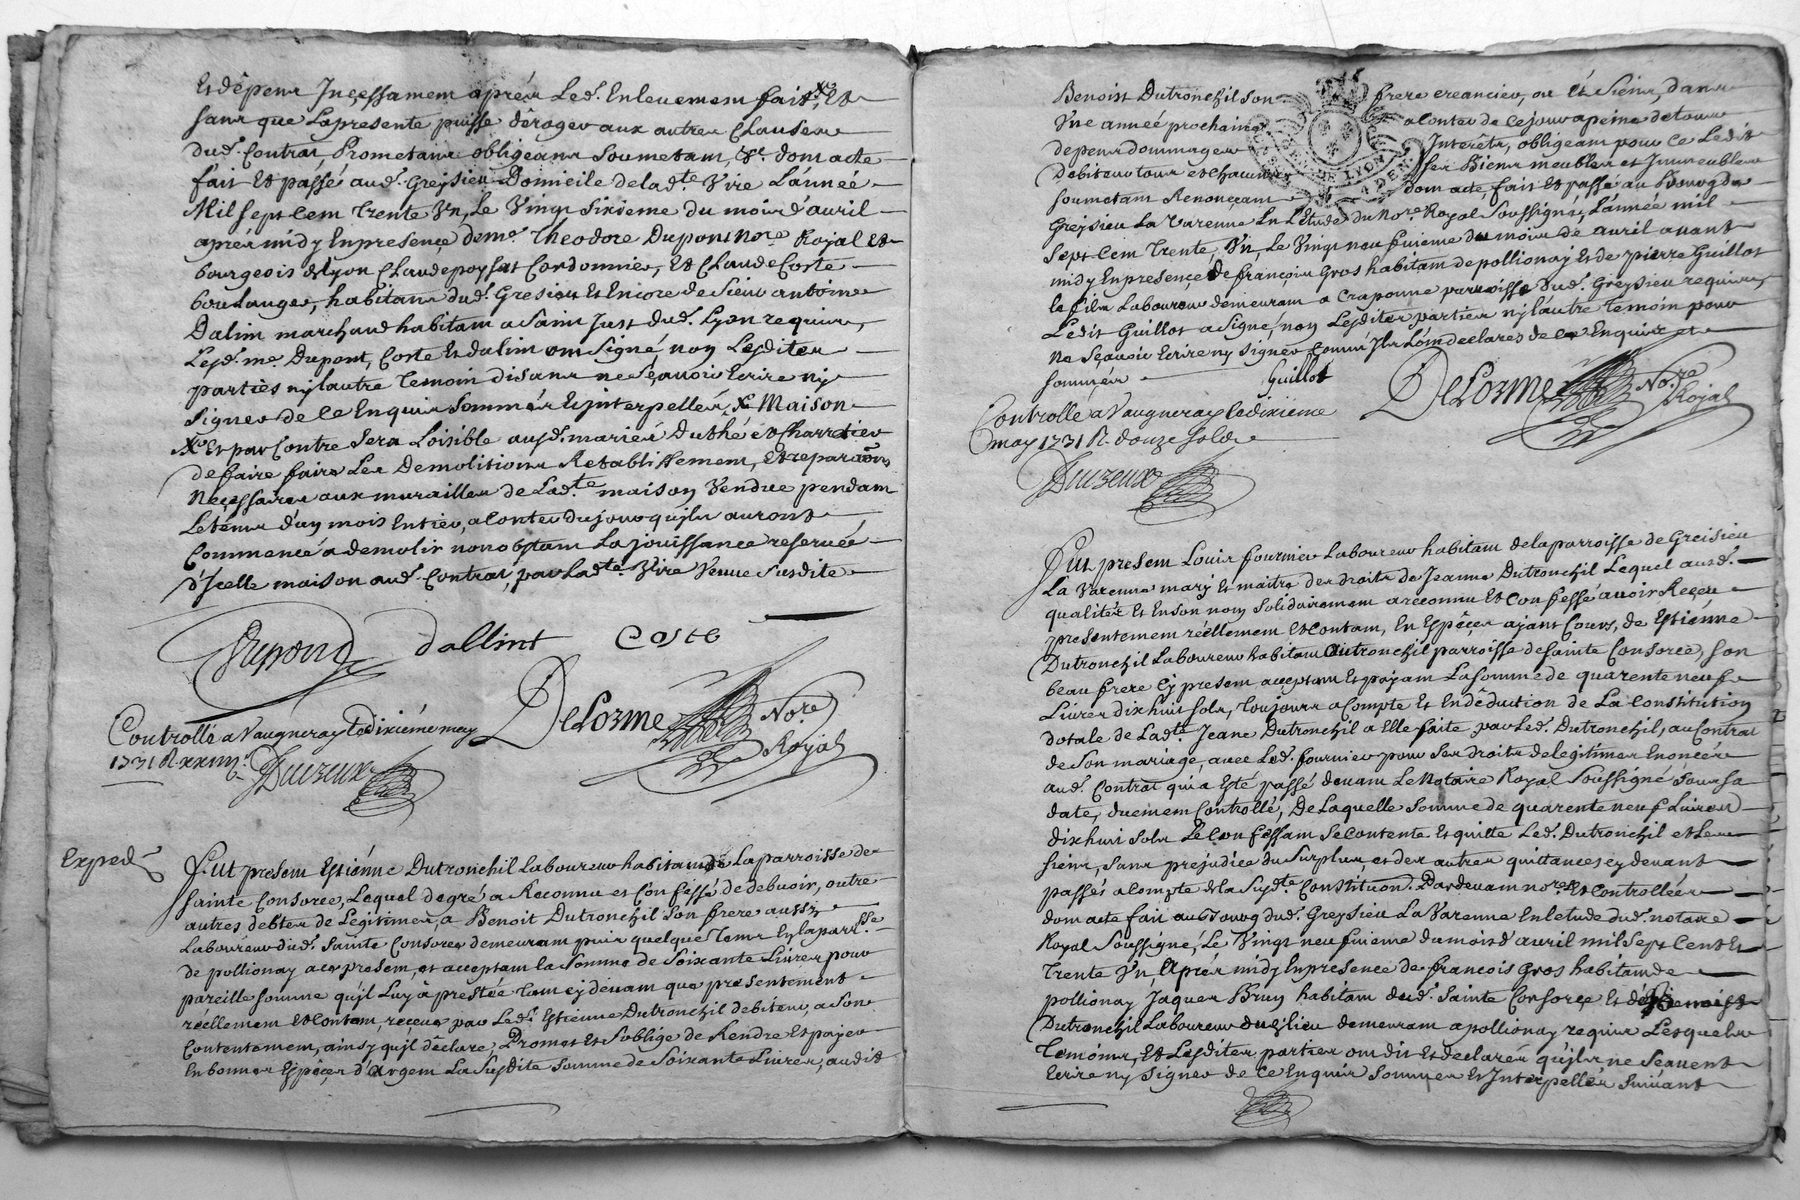 Et dêpens Incessamens aprés Led. Enleuement fait, Xe Et
sans que Lapresente puisse dêroger aux autres Clauses
dud. Contrat, Prometans obligeans Soumetans, &c. dont acte
fait Et passé aud. Greysieu Domicile delad.te Vire L'année
Mil sept cent Trente Vn, Le Vingt Sixieme du mois d'auril
aprés midy En presence de me. Theodore Dupont No.re Royal Et
bourgeois de Lyon Claude poysat Cordonnier, Et Claude Coste
boulanger, habitans dud. Gresieu Et Encore de Sieur antoine
Dalim marchand habitant a Saint Just dud. Lyon requis,
Lesd. me. Dupont, Coste Et dalim ont Signé, non Lesdites
parties ny lautre Temoin disans ne Sçavoir Ecrire ny
Signer de Ce Enquis Sommés Et Interpellés, Xe Maison
Xe Et par Contre Sera Loisible ausd. mariés Duthé et Charretier
de faire faire Les Demolitions Retablissement, Et reparaõns
Necessaires aux murailles de Lad.te maison Vendue pendant
Le tems d'un mois Entier, a Conter du jour qu'ils auront
Commencé a demolir nonobstant La jouissance reservée
d'Icelle maison aud. Contrat, par Lad.te Vire Veuue Susdite
Dupond dallint Coste
DeLorme No.re Royal
Controllé a Vaugneray le dixiéme may
1731 R xxiiii s.
Duzeux
Exped.
Fut present Estiénne Dutronchil Laboureur habitant de Laparroisse de
Sainte Consorce, Lequel de gré a Reconnu et Confessé de debuoir, outre
autres debtes de Legitimes, a Benoit Dutronchil Son frere aussy
Laboureur dud. Sainte Consorce demeurant puis quelque Tems En la parr.sse
de pollionay a ce present, et acceptant la Somme de Soixante Liures pour
pareille somme qu'il Luy à prestée Tant cy deuant que presentement
réellement Et Contant, receue par Led. Estienne Dutronchil debiteur, a Son
Contentement, ainsy qu'il dêclare, Promet Et S'oblige de Rendre Et payer
En bonnes Espéçes d'Argent La Susdite Somme de Soixante Liures, audit
Benoist Dutronchil Son frere creancier, ou Et Siens, dans
Vne année prochaine a Conter de Ce jour a peine de tous
depens dommages Interêts, obligeant pour Ce Ledit
debiteur tous et chacuns ses Biens meubles et Immeubles
soumetant Renonçant dont acte, fait Et passé au Bourg de
Greysieu La Varenne En L'Etude du No.re Royal Soussigné, L'année mil
sept cent Trente, Vn, Le Vingt neufuieme du mois de auril auant
midy En presence de françois Gros habitant de pollionay Et de pierre Guillot
le fils Laboureur demeurant a Craponne parroisse dud. Greysieu requis,
Ledit Guillot a Signé, non Lesdites parties ny l'autre Temoin pour
ne Sçauoir Ecrire ny Signer Comm' Ils L'ont declarés de Ce Enquis et
sommés Guillot
DeLorme No.re Royal
Controllé a Vaugneray le dixiéme
may 1731 R. douze sols
Duzeux
Fut present Louis fournier Laboureur habitant de la parroisse de Greisieu
La Varenne mary Et maitre des droits de Jeanne Dutronchil Lequel ausd.
qualités Et En son nom Solidairement a reconnu Et Confessé auoir Reçeu
presentement réellement Et Contant, En Espéçes ayant Cours, de Estiénne
Dutronchil Laboureur habitant Dutronchil parroisse de Sainte Consorce, Son
beau frere Cy present acceptant Et payant La Somme de quarente neuf
Liures dix huit Sols, Toujours a Compte Et En dêduction de La Constitution
dotale de Lad.te Jeane Dutronchil a Elle faite par Led. Dutronchil, au Contrat
de Son mariage, auec Led. fournier pour Ses droits de legitimes Enoncés
aud. Contrat qui a Esté passé deuant Le Notaire Royal Soussigné Sous Sa
date, duement Controllé, De Laquelle Somme de quarente neuf Liures
dix huit Sols Le Confessant Se Contente Et quitte Led. Dutronchil et Les
siens, sans prejudice du Surplus, et des autres quittances cy deuant
passés a Compte de la Susd.te Constitution. Pardeuant no.res Et Controllées
dont acte fait au Bourg dud. Greysieu La Varenne En l'etude dud. notaire
Royal Soussigné, Le Vingt neufuieme du mois d'auril mil Sept Cent Et
Trente Vn Aprés midy En presence de françois Gros habitant de
pollionay Jaques Brun habitant dud. Sainte Consorçe Et de Benoist
Dutronchil Laboureur dud. lieu demeurant a pollionay requis Lesquels
Temoins, Et Lesdites parties ont dit Et declarés qu'ils ne Sçauent
Ecrire ny Signer de Ce Enquis Sommés Et Interpellés Suiuant